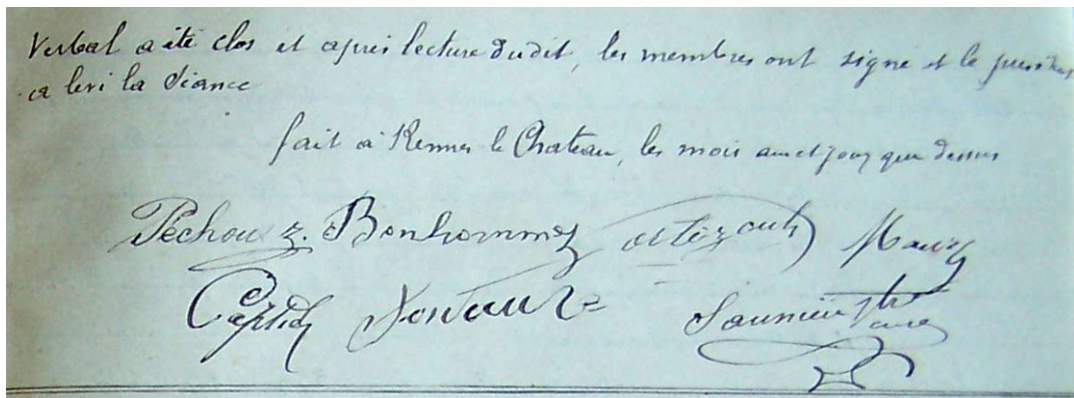 Verbal a été clos et après lecture dudit, les membres ont signé et le président
a levé la séance
fait à Rennes le Chateau, les mois an et jour que dessus
Péchou z. Bonhomme
Captier Saunière